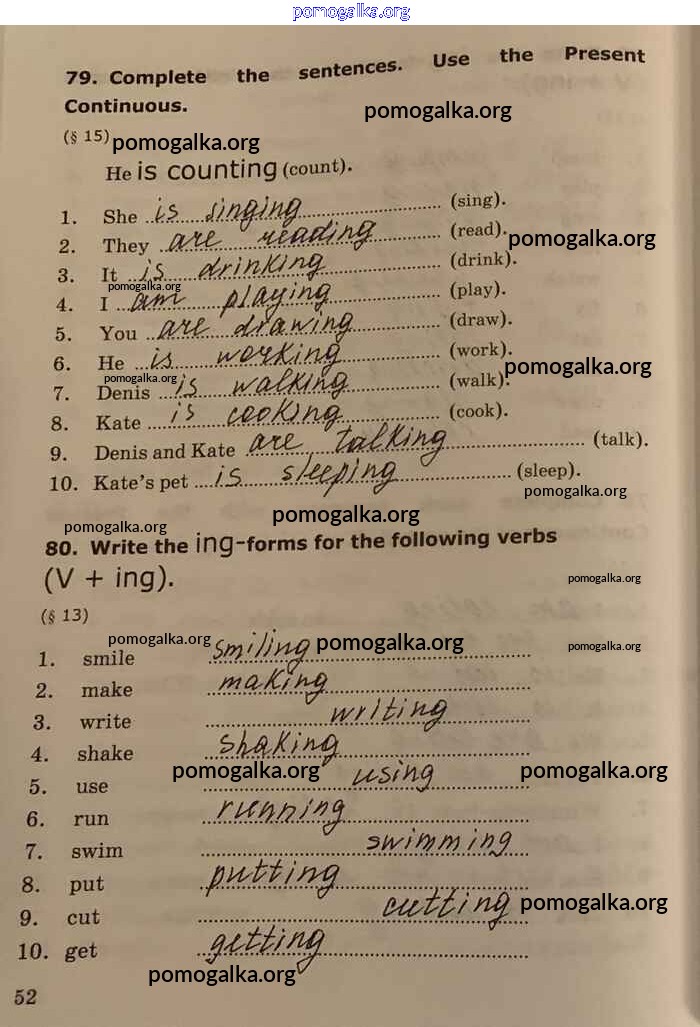 pomogalka.org
79. Complete the sentences. Use the Present
Continuous.
pomogalka.org
(§ 15) pomogalka.org
He is counting (count).
1. She is singing (sing).
2. They are reading (read). pomogalka.org
3. It is drinking (drink).
pomogalka.org
4. I am playing (play).
5. You are drawing (draw).
6. He is working (work).
pomogalka.org pomogalka.org
7. Denis is walking (walk).
8. Kate is cooking (cook).
9. Denis and Kate are talking (talk).
10. Kate's pet is sleeping (sleep).
pomogalka.org
pomogalka.org pomogalka.org
80. Write the ing-forms for the following verbs
(V + ing).
pomogalka.org
(§ 13)
pomogalka.org pomogalka.org pomogalka.org
1. smile smiling
2. make making
3. write writing
4. shake shaking
pomogalka.org pomogalka.org
5. use using
6. run running
7. swim swimming
8. put putting
9. cut cutting pomogalka.org
10. get getting
pomogalka.org
52